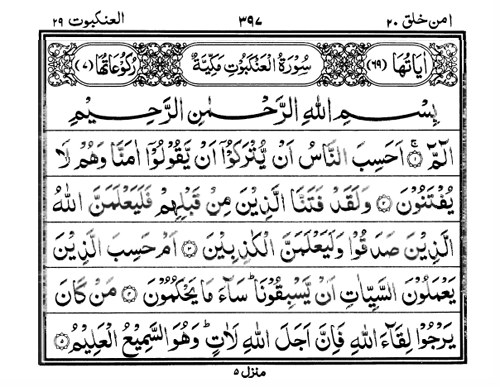 امن خلق ٢٠ ٣٩٧ العنكبوت ٢٩
اٰیَاتُهَا (٦٩) سُوْرَةُ الْعَنْكَبُوْتِ مَكِّیَّةٌ رُكُوْعَاتُهَا (٧)
بِسْمِ اللّٰهِ الرَّحْمٰنِ الرَّحِیْمِ
الٓمّٓ ۚ﴿١﴾ اَحَسِبَ النَّاسُ اَنْ یُّتْرَكُوْۤا اَنْ یَّقُوْلُوْۤا اٰمَنَّا وَهُمْ لَا
یُفْتَنُوْنَ ﴿٢﴾ وَلَقَدْ فَتَنَّا الَّذِیْنَ مِنْ قَبْلِهِمْ فَلَیَعْلَمَنَّ اللّٰهُ
الَّذِیْنَ صَدَقُوْا وَلَیَعْلَمَنَّ الْكٰذِبِیْنَ ﴿٣﴾ اَمْ حَسِبَ الَّذِیْنَ
یَعْمَلُوْنَ السَّیِّاٰتِ اَنْ یَّسْبِقُوْنَا ؕ سَآءَ مَا یَحْكُمُوْنَ ﴿٤﴾ مَنْ كَانَ
یَرْجُوْا لِقَآءَ اللّٰهِ فَاِنَّ اَجَلَ اللّٰهِ لَاٰتٍ ؕ وَهُوَ السَّمِیْعُ الْعَلِیْمُ ﴿٥﴾
منزل ٥